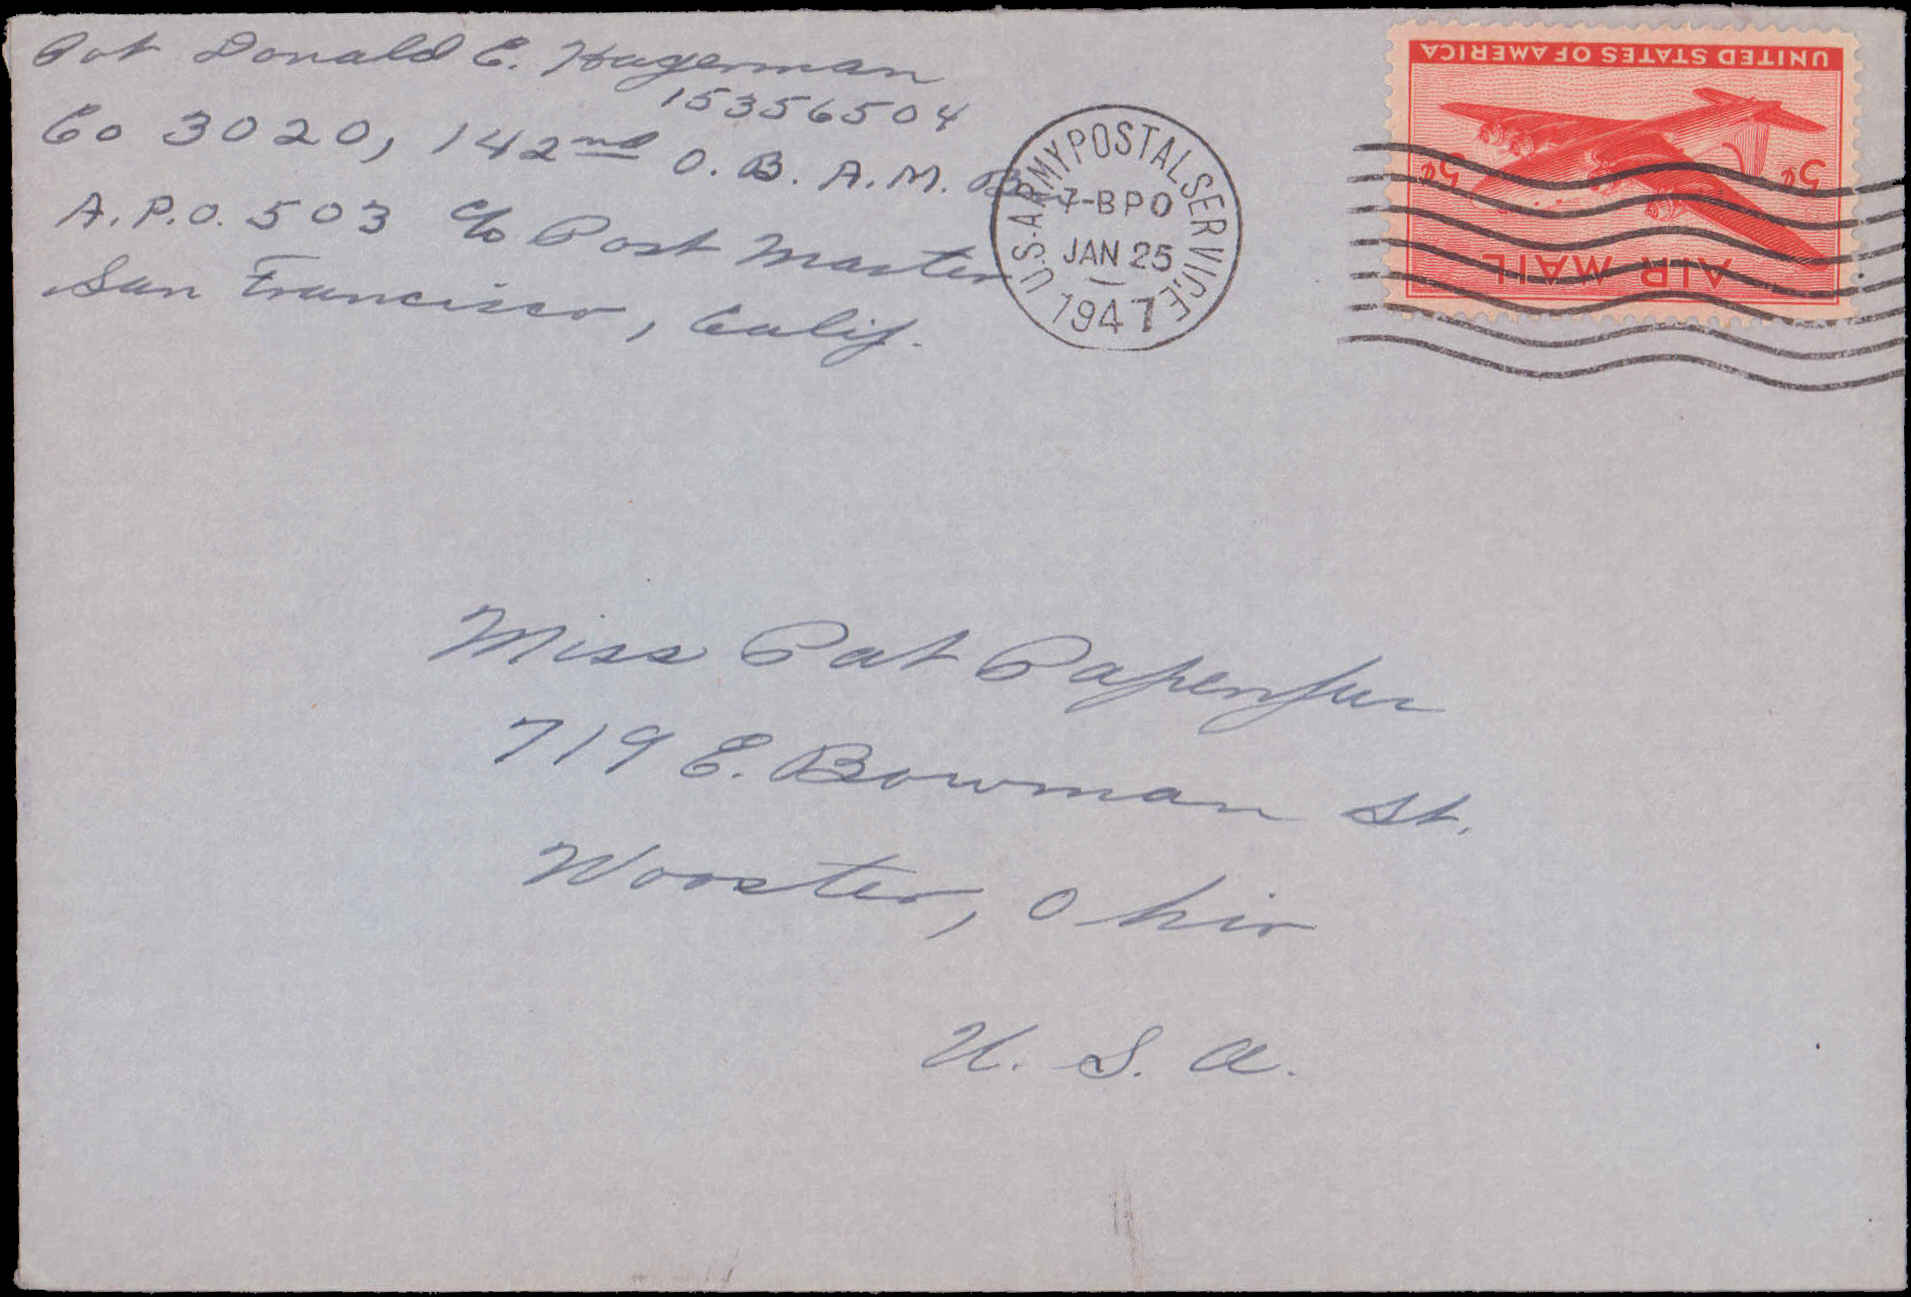 Pvt Donald E. Hagerman
15356504
Co 3020, 142nd O. B. A. M. B
A.P.O. 503 c/o Post Master
San Francisco, Calif.
U.S. ARMY POSTAL SERVICE
7-BPO
JAN 25
1947
UNITED STATES OF AMERICA
5¢ 5¢
AIR MAIL
Miss Pat Papenfus
719 E. Bowman St.
Wooster, Ohio
U. S. A.